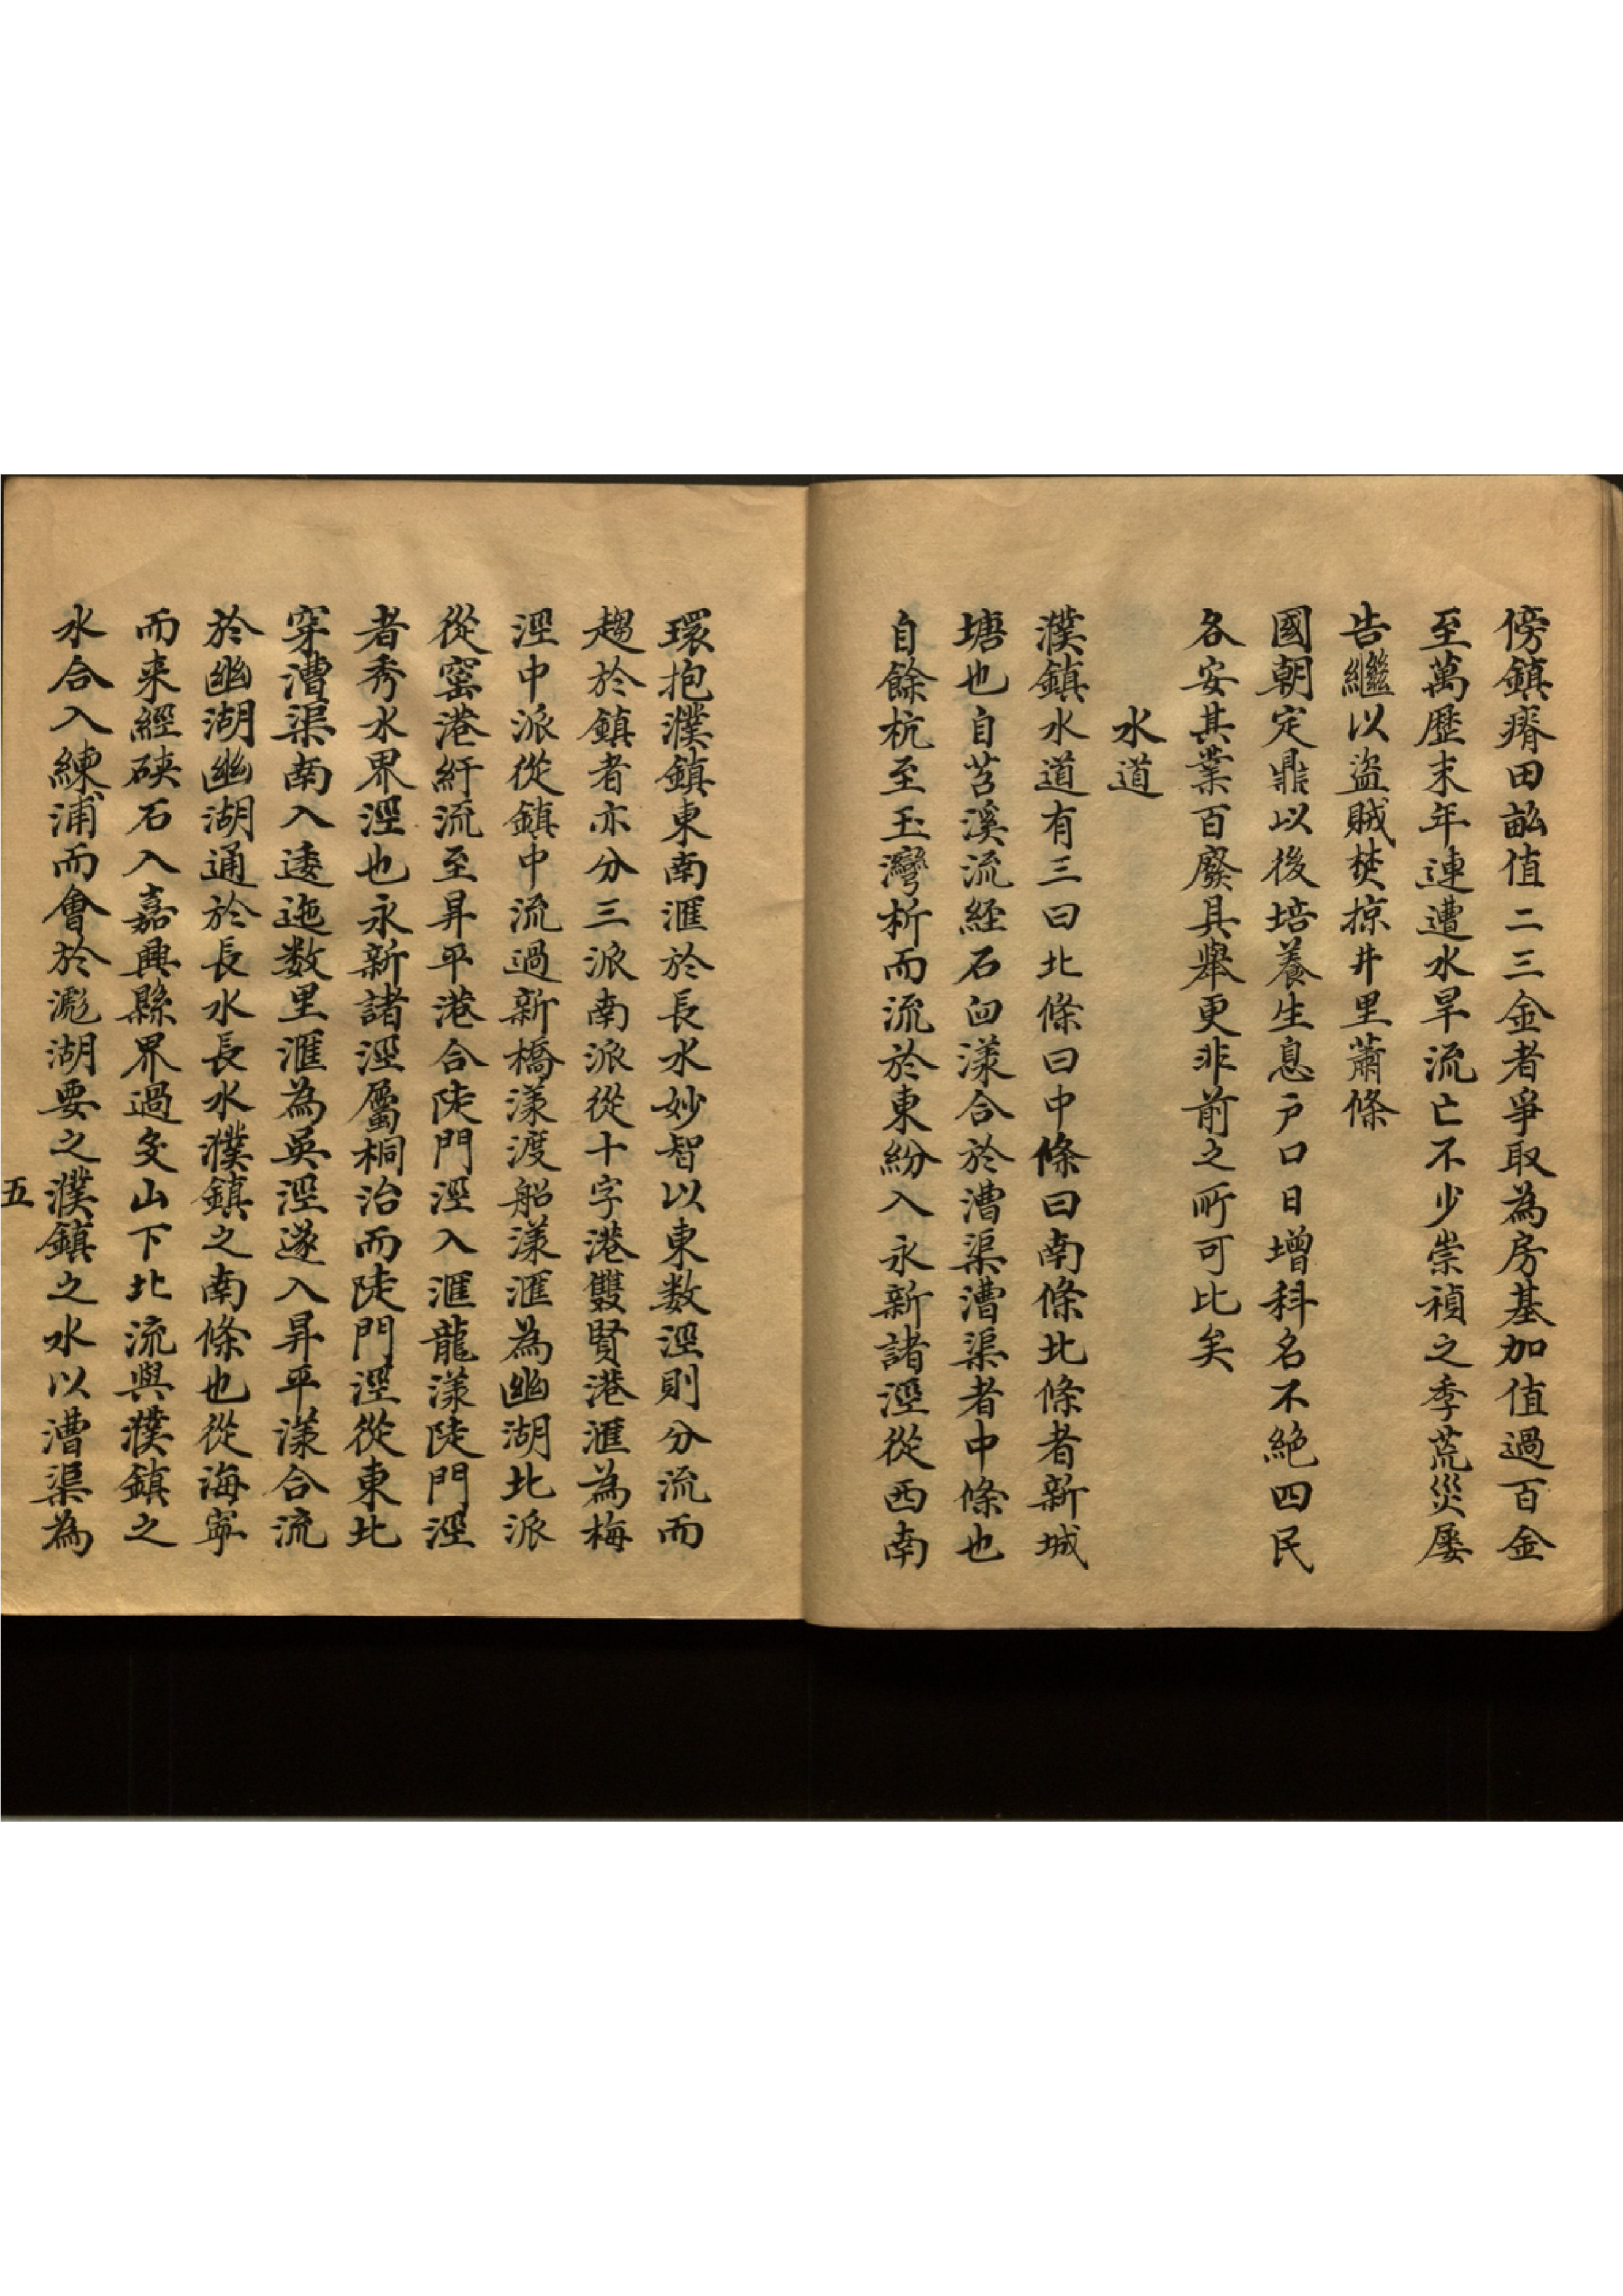 傍鎮瘠田畝值二三金者爭取為房基加值過百金
至萬歷末年連遭水旱流亡不少崇禎之季荒災屡
告繼以盜賊焚掠井里蕭條
國朝定鼎以後培養生息戶口日增科名不絶四民
各安其業百廢具舉更非前之所可比矣
水道
濮鎮水道有三曰北條曰中條曰南條北條者新城
塘也自苕溪流経石𠚑漾合於漕渠漕渠者中條也
自餘杭至玉灣析而流於東紛入永新諸涇從西南
環抱濮鎮東南滙於長水妙智以東数涇則分流而
趨於鎮者亦分三派南派從十字港雙賢港滙為梅
涇中派從鎮中流過新橋漾渡船漾滙為幽湖北派
從窑港紆流至昇平港合陡門涇入滙龍漾陡門涇
者秀水界涇也永新諸涇屬桐治而陡門涇從東北
穿漕渠南入逶迤数里滙為吳涇遂入昇平漾合流
於幽湖幽湖通於長水長水濮鎮之南條也從海寧
而来經硤石入嘉興縣界過殳山下北流與濮鎮之
水合入練浦而會於滮湖要之濮鎮之水以漕渠為
五